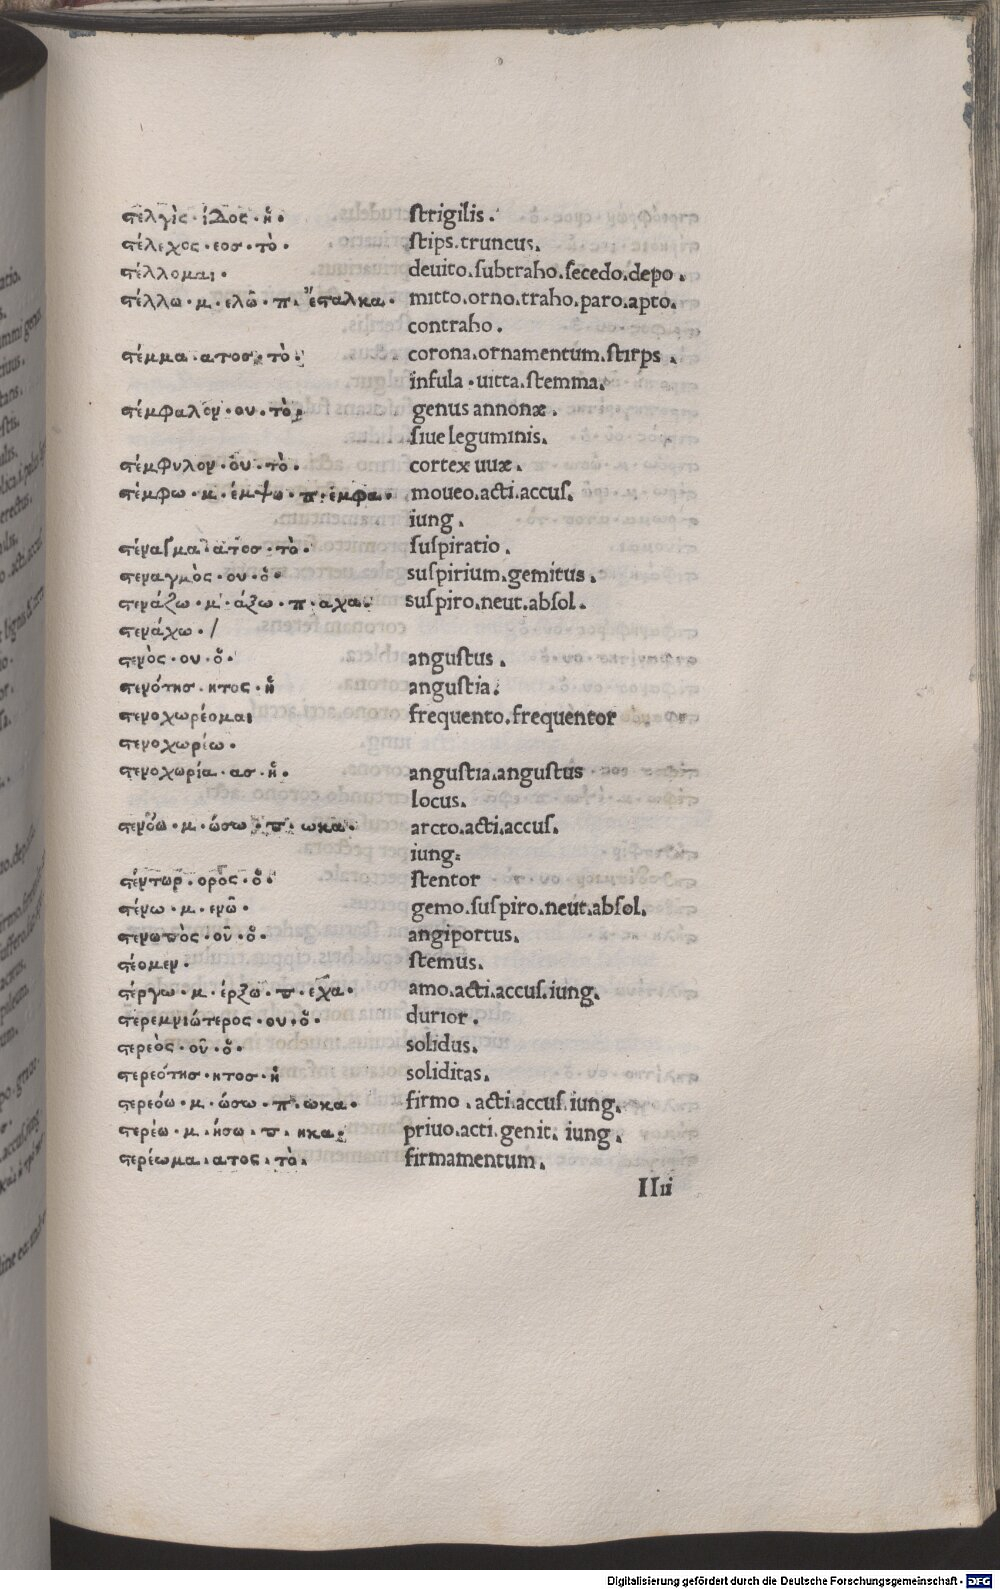 στελγὶς · ίδος · ἡ · strigilis .
στέλεχος · εοσ · τὸ · stips . truncus .
στέλλομαι · deuito . subtraho . secedo . depo .
στέλλω · μ · ελῶ · π · ἔσταλκα · mitto . orno . traho . paro . apto .
contraho .
στέμμα · ατοσ · τὸ · corona . ornamentum . stirps .
infula . uitta . stemma .
στέμφαλον · ου · τὸ · genus annonæ .
siue leguminis .
στέμφυλον · ου · τὸ · cortex uuæ .
στέμφω · μ · έμψω · π · έμφα · moueo . acti . accus .
iung .
στέναγμα · ατοσ · τὸ · suspiratio .
στεναγμὸς · ου · ὁ · suspirium . gemitus .
στενάζω · μ · άξω · π · αχα · suspiro . neut . absol .
στενάχω · /
στενὸς · ου · ὁ · angustus .
στενότησ · ητος · ἡ angustia .
στενοχωρέομαι frequento . frequentor
στενοχωρίω ·
στενοχωρία · ασ · ἡ · angustia . angustus
locus .
στενόω · μ · ώσω · π · ωκα · arcto . acti . accus .
iung .
στέντωρ · ορος · ὁ · stentor
στένω · μ · ενῶ · gemo . suspiro . neut . absol .
στενωπος · οῦ · ὁ · angiportus .
στέομεν · stemus .
στέργω · μ · έρξω · π · εχα · amo . acti . accus . iung .
στερεμνιώτερος · ου · ὁ · durior .
στερεὸς · οῦ · ὁ · solidus .
στερεότησ · ητοσ · ἡ soliditas .
στερεόω · μ · ώσω · π · ωκα · firmo . acti . accus . iung .
στερέω · μ · ήσω · π · ηκα · priuo . acti . genit . iung .
στερέωμα · ατος · τὸ · firmamentum .
IIii
Digitalisierung gefördert durch die Deutsche Forschungsgemeinschaft - DFG